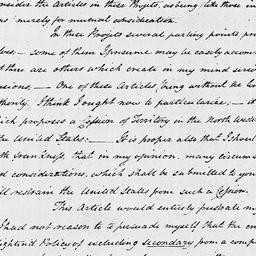 nsider the Articles in these Projets, as being like those in
ns' merely for mutual consideration.
In these Projets several parting points pre
lves — some of them I presume may be easily accom
t there are others which create in my mind serio
nsions, — One of these Articles being without the lim
thority, I think I ought now to particularize; — it
hich proposes a Cession of Territory in the north weste
the United States: — It is proper also that I shoul
th frankness, that in my opinion, many circums
d considerations, which shall be submitted to you
ill restrain the United States from such a Cession.
This Article would entirely frustrate my
I had not reason to persuade myself that the en
lightened Policy of excluding secondary from a comp